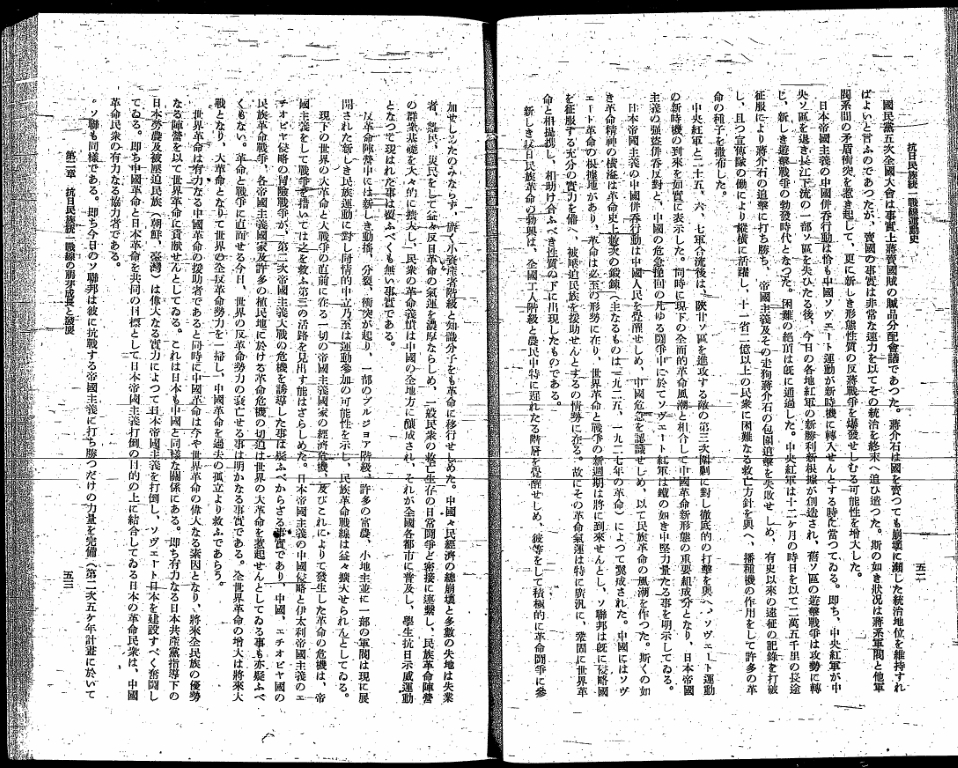 抗日民族統一戰線運動史
五二
國民黨五次全國大會は事實上蔣賣國賊の贓品分配會議であつた。蔣介石は國を賣つても崩壞に瀕した統治地位を維持すれ
ばよいと言ふのであつたが、賣國の事實は非常な速力を以てその統治を終末へ追ひ遣つた。斯の如き狀況は蔣系軍閥と他軍
閥系間の矛盾衝突を惹き起して、更に新しき形態性質の反蔣戰爭を爆發せしむる可能性を增大した。
日本帝國主義の中國併呑行動は恰も中國ソヴェート運動が新時機に轉入せんとする時に當つてゐる。即ち、中央紅軍が中
央ソ區を退き長江下流の一部ソ區を失ひたる後、今日の各地紅軍の新勝利新根據が創造され、舊ソ區の遊擊戰爭は攻勢に轉
じ、新しき遊擊戰爭の勃發時代となつた。困難の絕頂は旣に通過した。中央紅軍は十二ヶ月の時日を以て二萬五千里の長途
征服により蔣介石の追擊に打ち勝ち、帝國主義及その走狗蔣介石の包圍追擊を失敗せしめ、有史以來の遠征の記錄を打破
し、且つ宣傳隊の働により縱橫に活躍し、十一省二億以上の民衆に困難なる救亡方針を與へ、播種機の作用をして許多の革
命の種子を撒布した。
中央紅軍と二十五、六、七軍合流後は、陝甘ソ區を進攻する敵の第三次圍剿に對し徹底的の打擊を與へ、ソヴェート運動
の新時機の到來を如實に表示した。同時に現下の全面的革命風潮と相合して中國革命新形態の重要組成分となり、日本帝國
主義の强盜併呑反對と、中國の危急挽回の凡ゆる鬪爭中に於てソヴェート紅軍は鐵の如き中堅力量たる事を明示してゐる。
日本帝國主義の中國併呑行動は中國人民を覺醒せしめ、中國危急を認識せしめ、以て民族革命の風潮を作つた。斯くの如
き革命精神の橫溢は革命史上數次の鍛鍊（主なるものは一九二五、一九二七年の革命）によつて翼成された。中國にはソヴ
ェート革命の根據地があり、革命は必至の形勢に在り、世界革命と戰爭の新週期は將に到來せんとし、ソ聯邦は旣に侵略國
を征服する充分の實力を備へ、被壓迫民族を援助せんとするの情勢に在る。故にその革命氣運は特に廣汎に、鞏固に世界革
命と相提携し、相助け合ふべき性質の下に出現したものである。
新しき抗日民族革命の勃興は、全國工人階級と農民中特に遲れたる階層を覺醒せしめ、彼等をして積極的に革命鬪爭に參
加せしめたのみならず、廣く小資產階級と知識分子をも革命に移行せしめた。中國々民經濟の總崩壞と多數の失地は失業
者、饑民、災民をして益々反日革命の氣運を濃厚ならしめ、一般民衆の救亡生存の日常鬪爭と密接に連繫し、民族革命陣營
の群衆基礎を大々的に擴大し、民衆の革命義憤は中國の全地方に釀成され、それが全國各都市に普及し、學生抗日示威運動
となつて現はれた事は復ふべくも無い事實である。
反革命陣營中には新しき動搖、分裂、衝突が起り、一部のブルジョア階級、許多の富農、小地主並に一部の軍閥は現に展
開された新しき民族運動に對し同情的中立乃至は運動參加の可能性を示し、民族革命戰線は益々擴大せられんとしてゐる。
現下の世界の大革命と大戰爭の直前に在る一切の帝國主義國家の經濟危機、及びこれにより發生した革命の危機は、帝
國主義をして戰爭を措いては之を救ふ第三の活路を見出す能はざらしめた。日本帝國主義の中國侵略と伊太利帝國主義のエ
チオピヤ侵略の冒險戰爭が、第二次帝國主義大戰の危機を誘導した事は疑ふべからざる事實であり、中國、エチオピヤ國の
民族革命戰爭、各帝國主義國家及許多の植民地に於ける革命危機の切迫は世界の大革命を惹起せんとしてゐる事も亦疑ふべ
くもない。革命と戰爭に直面せる今日、世界の反革命勢力の衰亡せる事は明かなる事實である。全世界革命の增大は將來大
戰となり、大革命となりて世界の全反革命勢力を一掃し、中國革命を過去の孤立より救ふであらう。
世界革命は有力なる中國革命の援助者であると同時に中國革命は今や世界革命の偉大なる素因となり、將來全民族の優勢
なる陣營を以て世界革命に貢獻せんとしてゐる。これは日本も中國と同樣な關係にある。即ち有力なる日本共產黨指導下の
日本勞農及被壓迫民族（朝鮮、臺灣）は偉大なる實力によつて日本帝國主義を打倒し、ソヴェート日本を建設すべく奮鬪し
てゐる。即ち中國革命と日本革命を共同の目標として日本帝國主義打倒の目的の上に結合してゐる日本の革命民衆は、中國
革命民衆の有力なる協力者である。
ソ聯も同樣である。即ち今日のソ聯邦は彼に抗戰する帝國主義に打ち勝つだけの力量を完備（第二次五ヶ年計畫に於いて
第二章 抗日民族統一戰線の萠芽成長と發展
五三